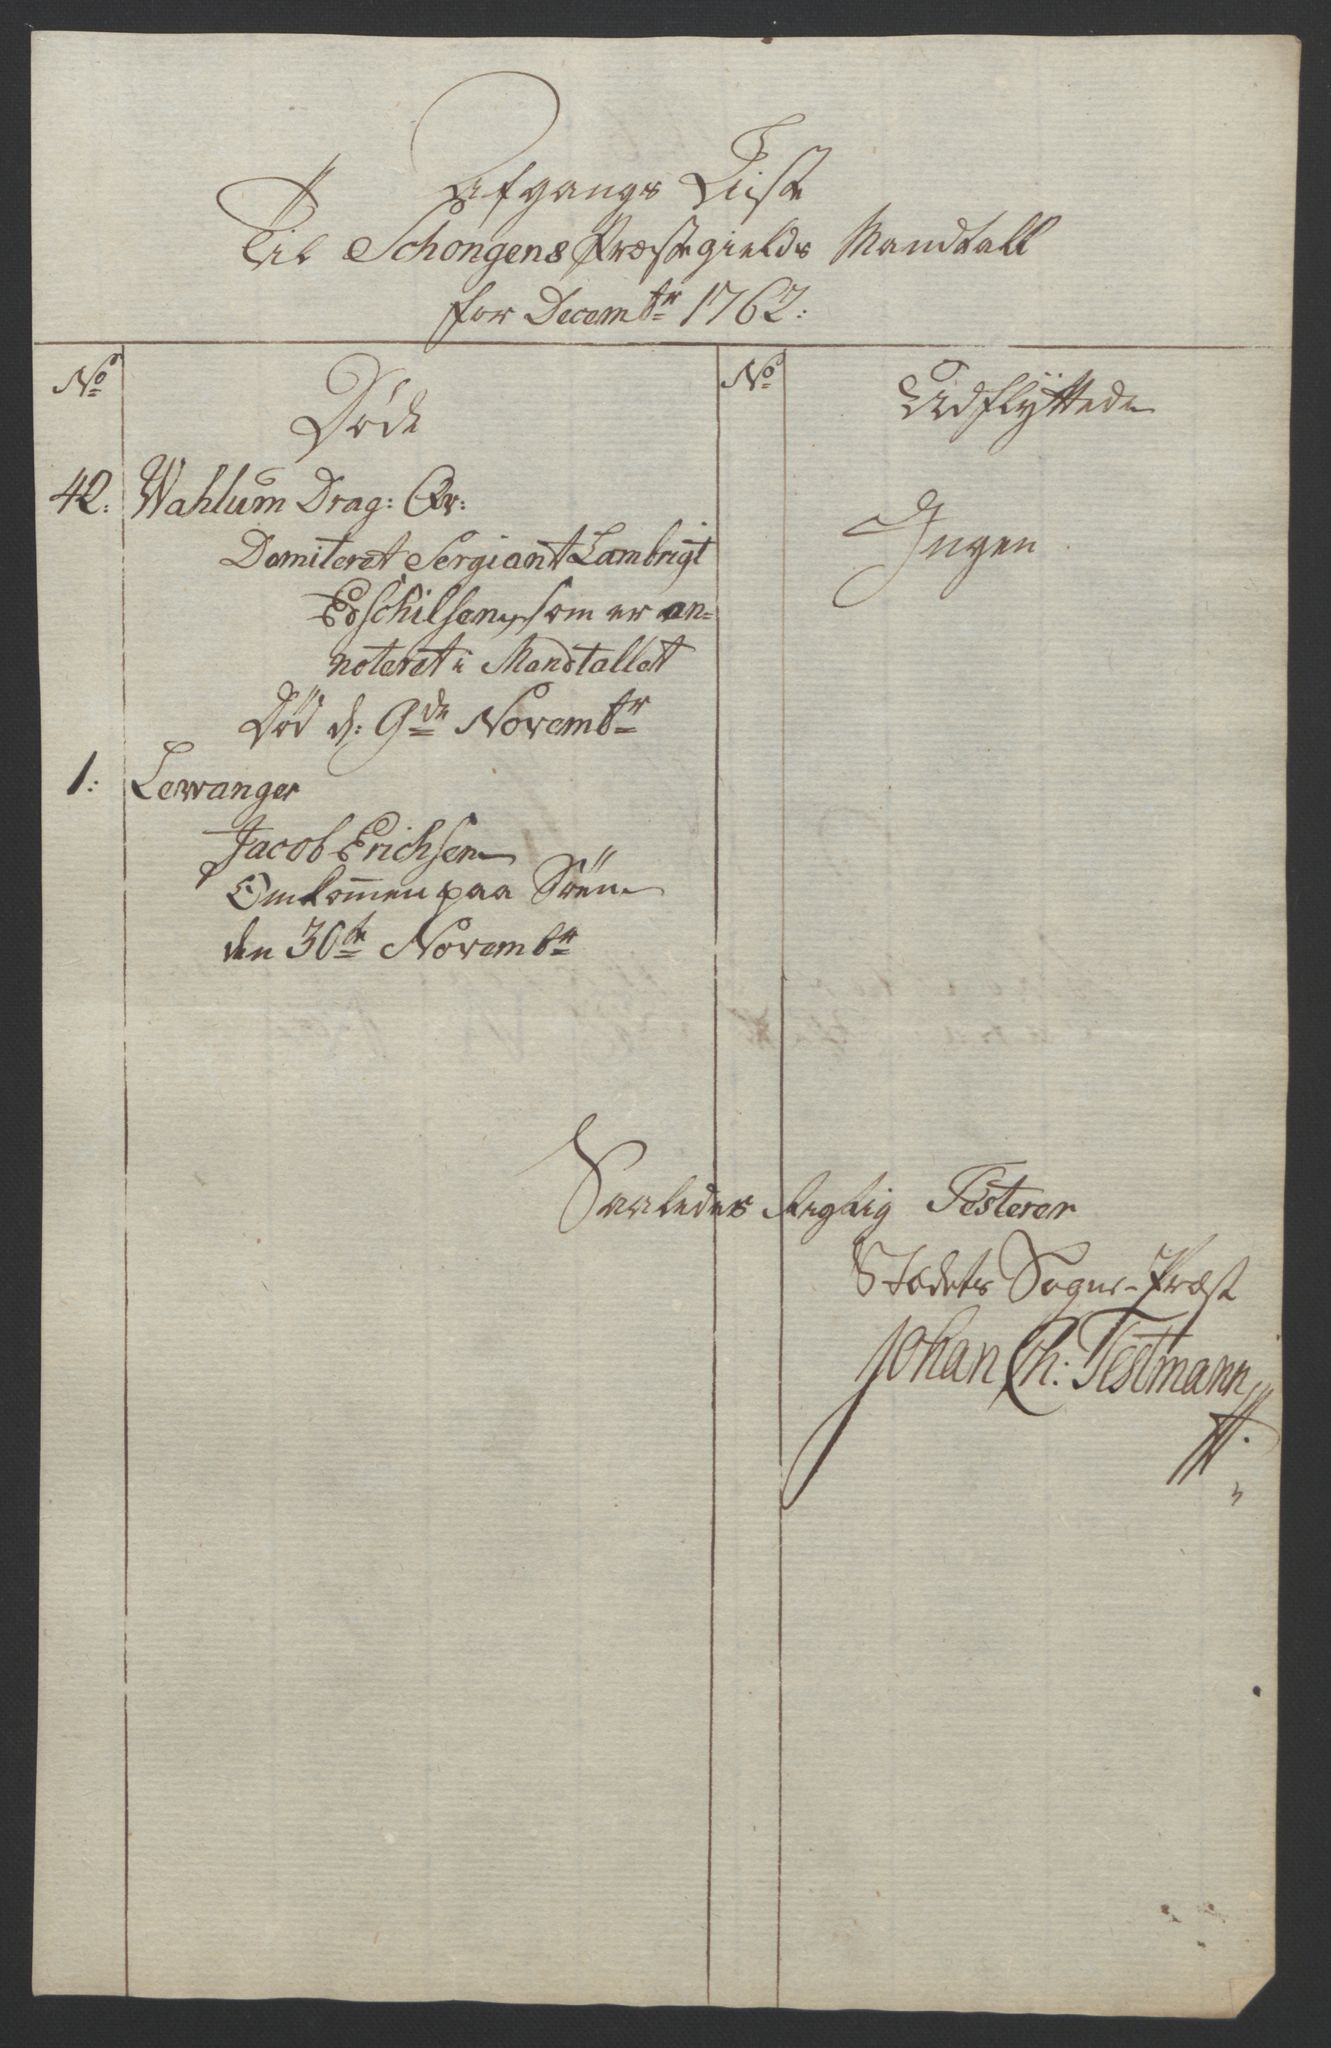 Afgangs Liste
Til Schongens Præstegields Mandtall
for Decembr 1762:
No
Døde
No
Udflÿttede
42. Wahlum Drag: Qr:
Ingen
Demiteret Sergiant Lambrigt
Edschilsen, som er an-
noteret i Mandtallet
Død d: 9de Novembr
1: Lewanger
Jacob Erichsen
Omkom̄en paa Søen
den 30te Novembr
Saaledes rigtig Testerer
Stædets Sogne-Præst
Johan Ch: Testmann